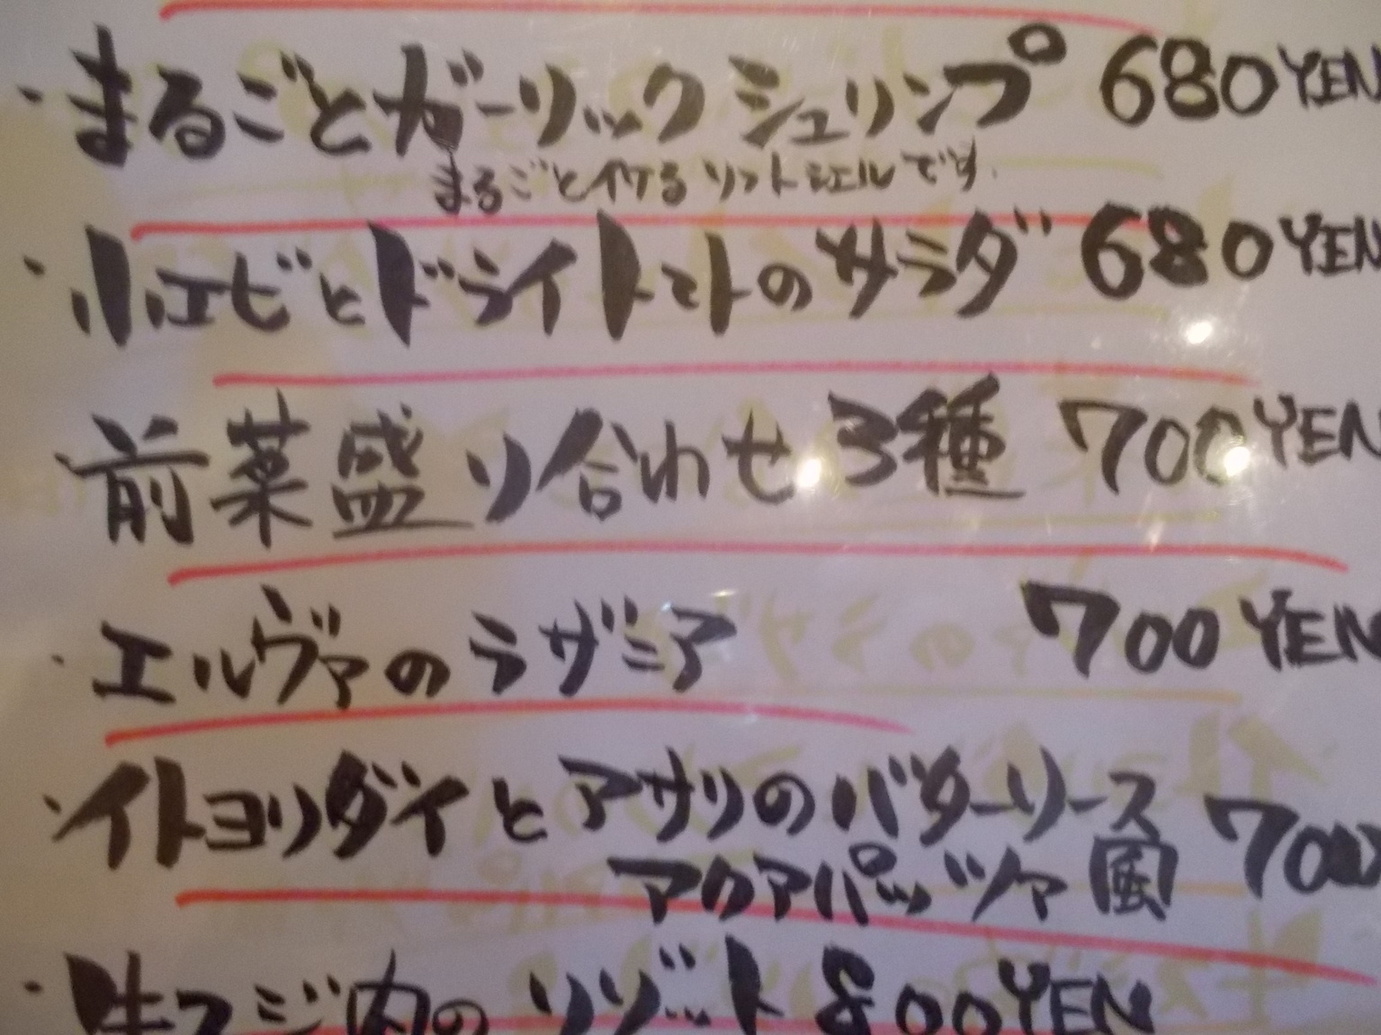 ・まるごとガーリックシュリンプ 680YEN
まるごとイケるソフトシェルです.
・小エビとドライトマトのサラダ 680YEN
・前菜盛り合わせ3種 700YEN
・エルヴァのラザニア 700YEN
・イトヨリダイとアサリのバターソース 700
アクアパッツァ風
・牛スジ肉のリゾット 800YEN